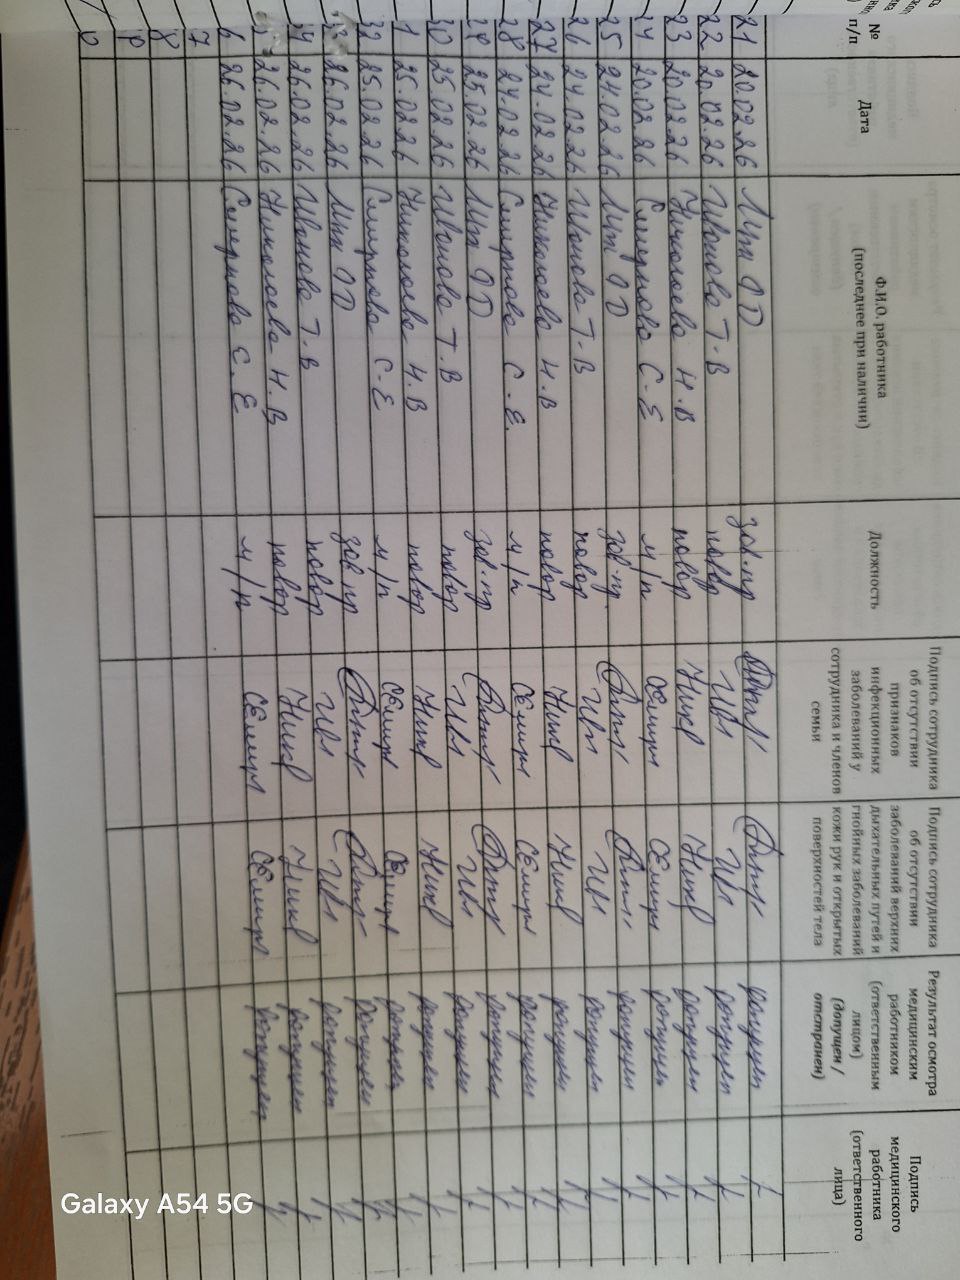 № п/п
Дата
Ф.И.О. работника (последнее при наличии)
Должность
Подпись сотрудника об отсутствии признаков инфекционных заболеваний у сотрудника и членов семьи
Подпись сотрудника об отсутствии заболеваний верхних дыхательных путей и гнойных заболеваний кожи рук и открытых поверхностей тела
Результат осмотра медицинским работником (ответственным лицом) (допущен / отстранен)
Подпись медицинского работника (ответственного лица)
21 20.02.26 зав.пр допущен
22 20.02.26 Иванова Т.В повар допущен
23 20.02.26 Николаева Н.В повар допущен
24 20.02.26 Смирнова С.Е м/п допущен
25 24.02.26 зав.пр. допущен
26 24.02.26 Иванова Т.В повар допущен
27 24.02.26 Николаева Н.В повар допущен
28 24.02.26 Смирнова С.Е. м/п допущен
29 25.02.26 зав.пр допущен
30 25.02.26 Иванова Т.В повар допущен
1 25.02.26 Николаева Н.В повар допущен
32 25.02.26 Смирнова С.Е м/п допущен
26.02.26 зав.пр допущен
34 26.02.26 Иванова Т.В повар допущен
26.02.26 Николаева Н.В повар допущен
6 26.02.26 Смирнова С.Е м/п допущен
7
8
Galaxy A54 5G